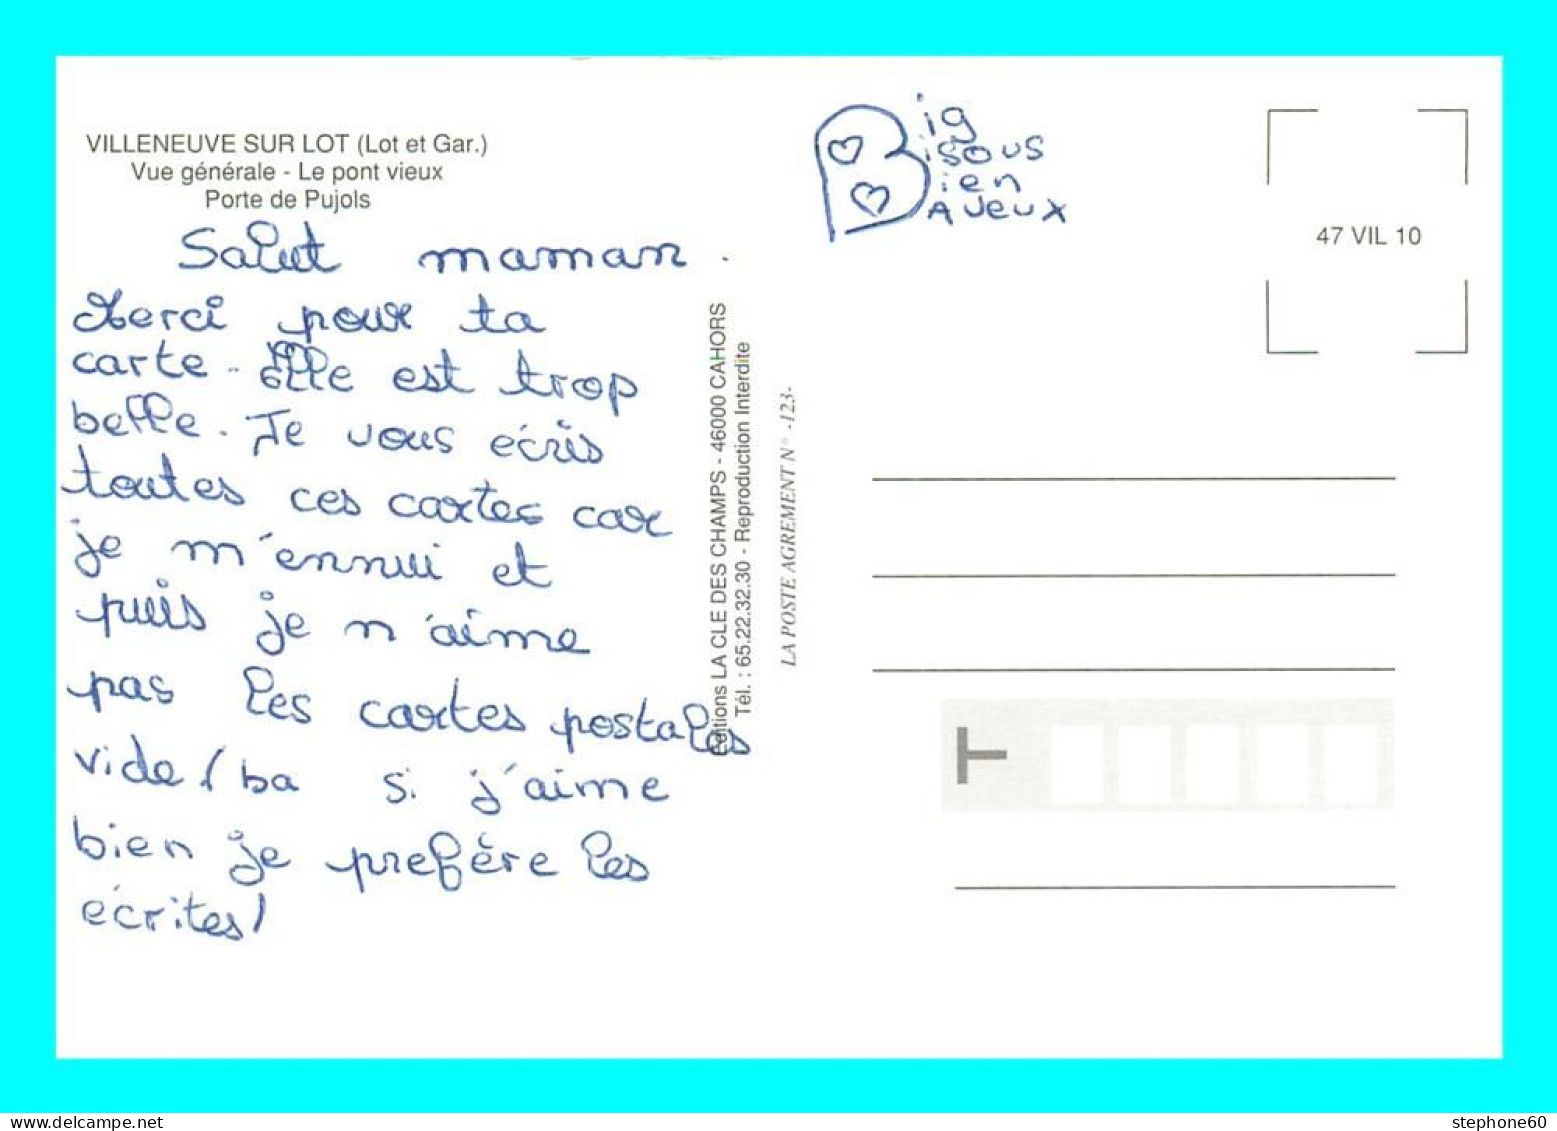 VILLENEUVE SUR LOT (Lot et Gar.)
Vue générale - Le pont vieux
Porte de Pujols
Salut maman.
Merci pour ta
carte. Elle est trop
belle. Je vous écris
toutes ces cartes car
je m'ennui et
puis je n'aime
pas les cartes postales
vide/ba si j'aime
bien je prefère les
écrites/
Editions LA CLE DES CHAMPS - 46000 CAHORS
Tél. : 65.22.32.30 - Reproduction Interdite
LA POSTE AGREMENT N° -123-
Big
Bisous
Bien
BAveux
47 VIL 10
T
stephone60